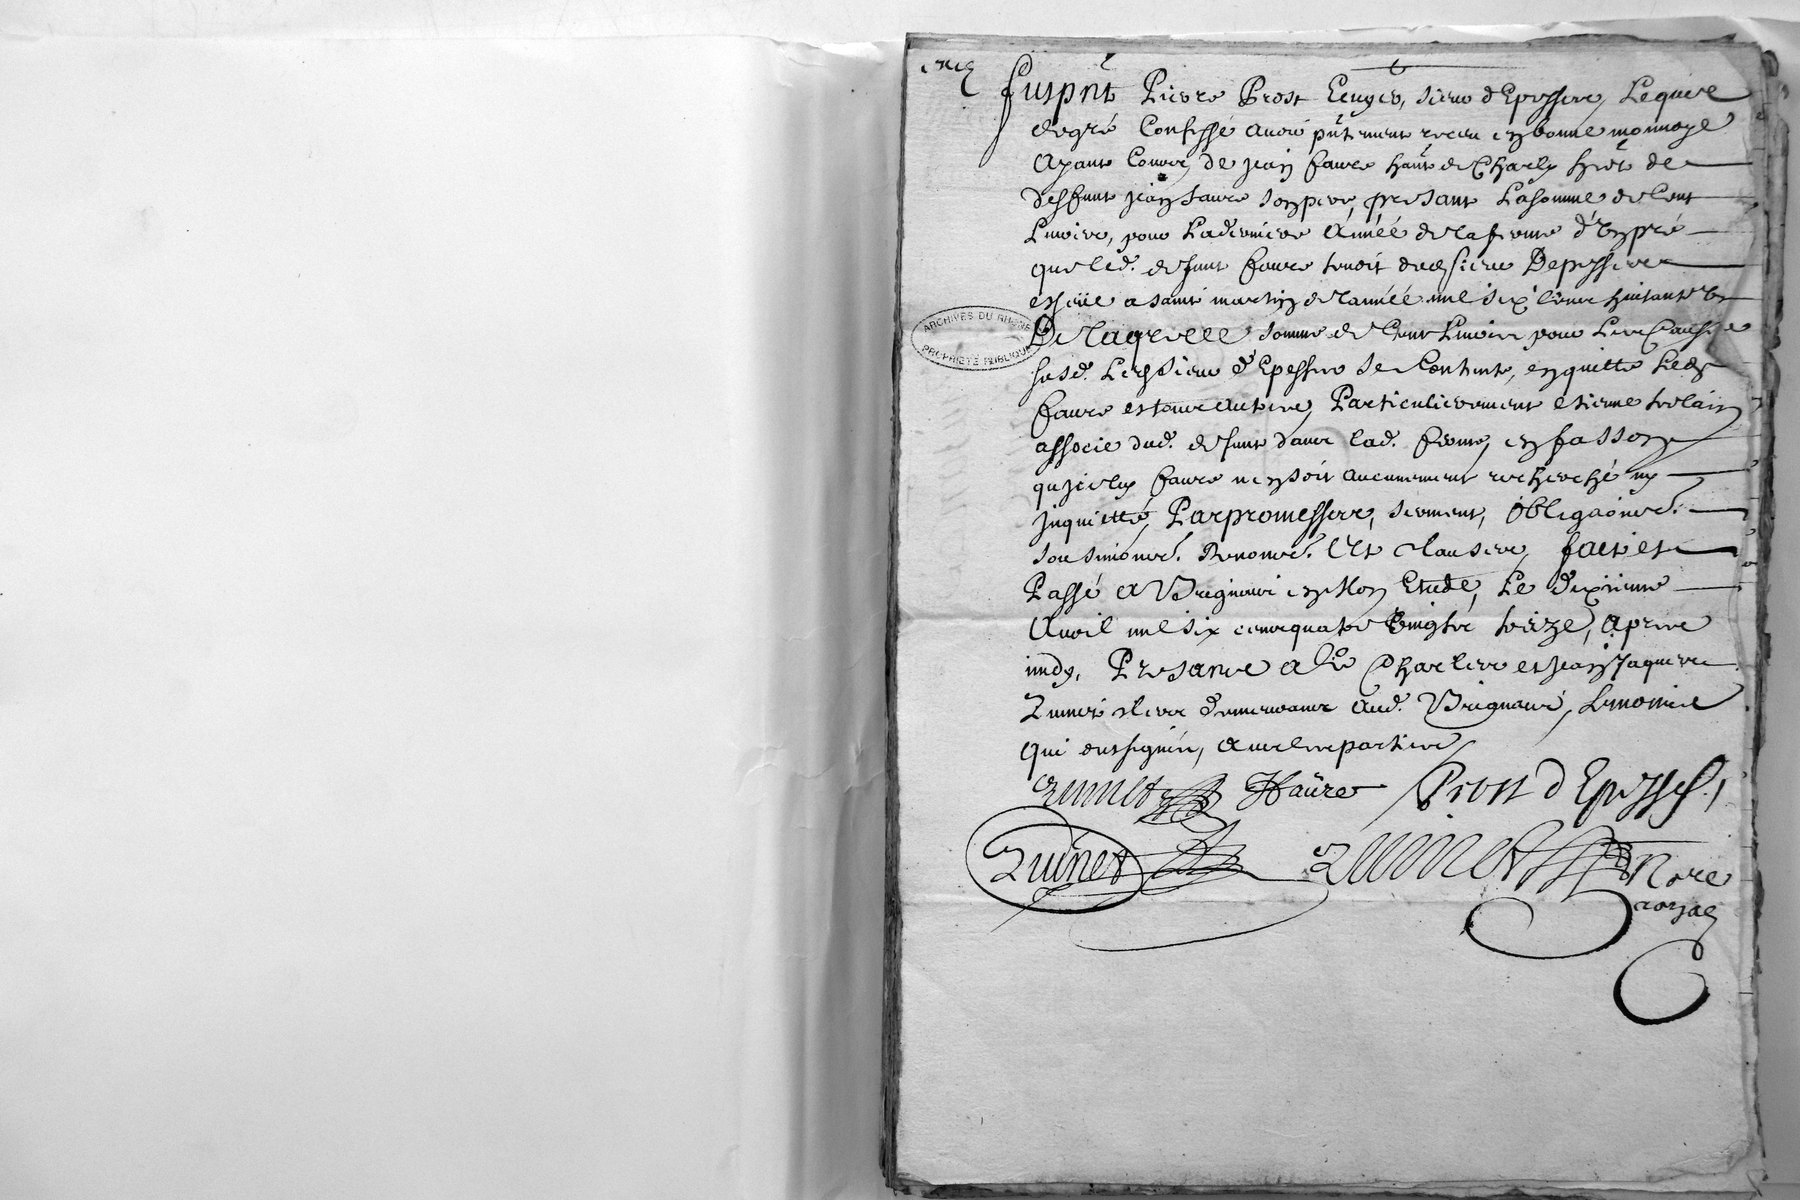 fut pñt Pierre Prost Escuyer, sieur d'Epeissere, Lequel
de gré Confesse avoir pñtement receu en bonne monnoye
ayant Cours, de Jean faure hañt de Charly hert de
deffunt Jean faure son pere, presant La somme de Cent
Livres, pour La derniere Année de la ferme d'un pré
que led. defunt faure tenoit dud. sieur Depeissere
escheüe a saint martin de l'année mil six cents huitante
De laquelle somme de Cent Livres pour Les Causes
susd. Led. sieur d'Epeissere se Contente, en quitte Led.
faure et tous autres, Particulierement etienne
associe dud. defunt dans lad. ferme, en fasson
qu'jceluy faure n'en soit aucunement recherché ny
Jnquietté, Par promesses, serment, Obligaôns.
soumissions. Renonce. Et Clauses, fait et
Passé a Vrignais en Mon Etude, Le dixieme
Avril mil six cents quatre Vingts treize, apres
midy, Presants Charles et Jean Jaques
Zuinet Clercs demeurants aud. Vrignais, tesmoins
qui ont signés, avec les parties
Zuinet Faure Prost d'Epeisse
Zuinet Zuinet Nore
royal
ARCHIVES DU RHÔNE
PROPRIÉTÉ PUBLIQUE